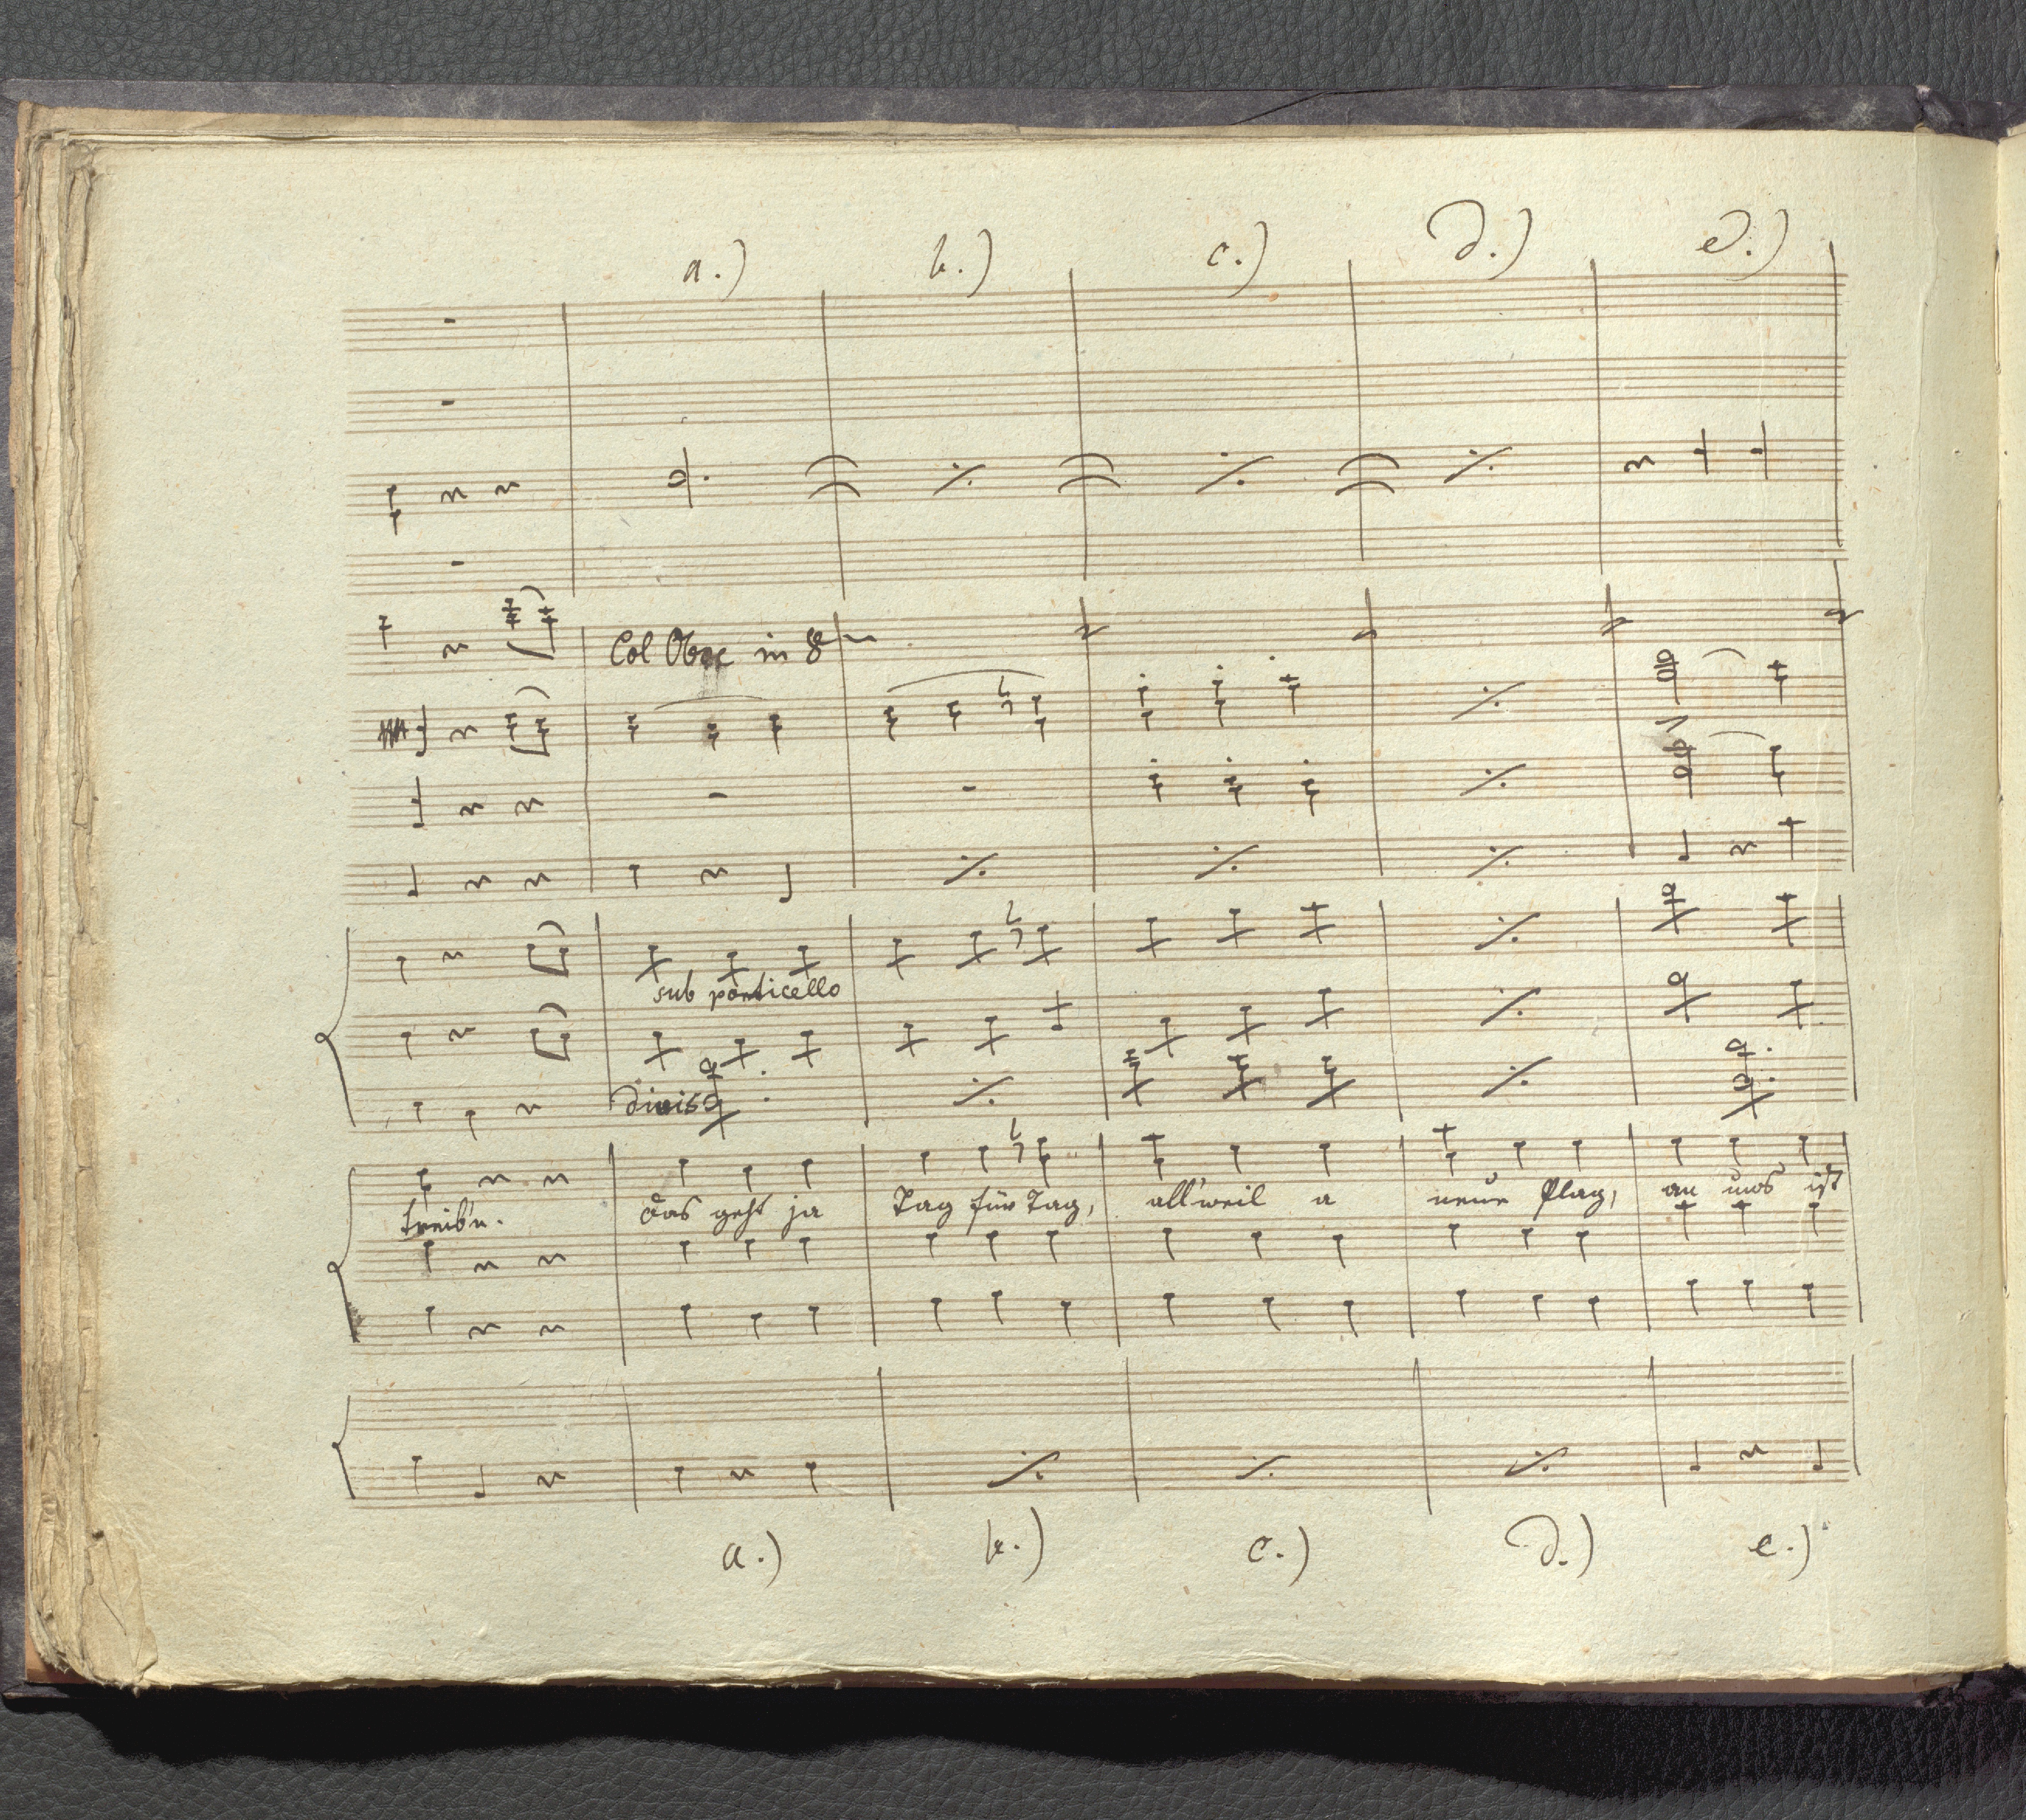 a.) b.) c.) d.) e.)
Col Oboe in 8
sub ponticello
divisi
treib'n. das geht ja Tag für Tag, all'weil a neue Plag, an uns ist
a.) b.) c.) d.) e.)